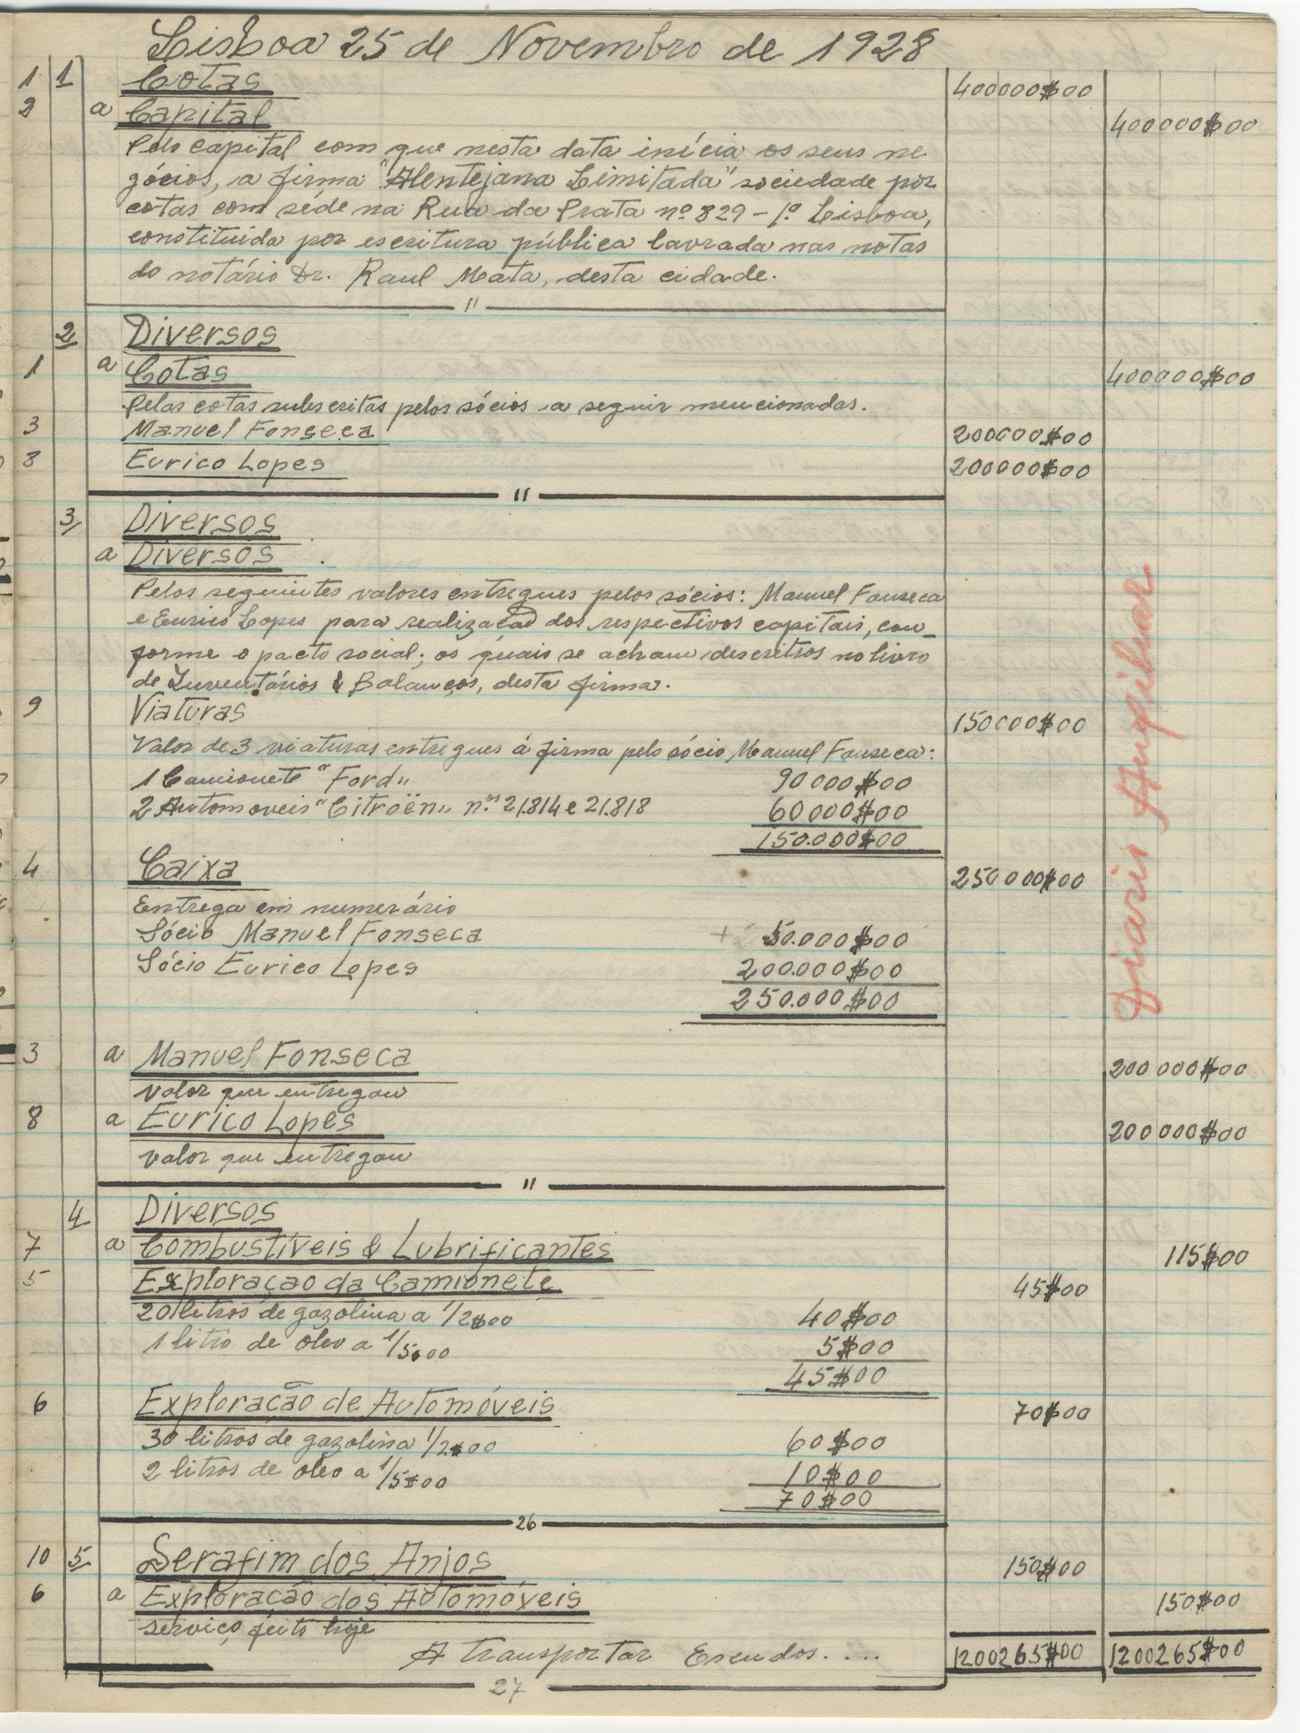 Lisboa 25 de Novembro de 1928
1 1 Cotas 400000$00
2 a Capital 400000$00
Pelo capital com que nesta data inícia os seus ne
gócios, a firma "Alentejana Limitada" sociedade por
cotas com séde na Rua da Prata nº 829-1º Lisboa,
constituída por escritura pública lavrada nas notas
do notário Dr. Raul Mata, desta cidade.
"
2 Diversos
1 a Cotas 400000$00
Pelas cotas subscritas pelos sócios a seguir mencionadas.
3 Manuel Fonseca 200000$00
8 Eurico Lopes 200000$00
"
3 Diversos
a Diversos
Pelos seguintes valores entregues pelos sócios: Manuel Fonseca
e Eurico Lopes para realização dos respectivos capitais, con_
forme o pacto social; os quais se acham descritos no livro
de Inventários & Balanços, desta firma.
9 Viaturas 150000$00
Valor de 3 viaturas entregues á firma pelo sócio, Manuel Fonseca:
1 Camionete "Ford" 90000$00
2 Automoveis "Citroën" n.os 21.814 e 21.818 60000$00
150.000$00
4 Caixa 250000$00
Entrega em numerário
Sócio Manuel Fonseca 50.000$00
Sócio Eurico Lopes 200.000$00
250.000$00
3 a Manuel Fonseca 200000$00
valor que entregou
8 a Eurico Lopes 200000$00
valor que entregou
"
4 Diversos
7 a Combustíveis & Lubrificantes 115$00
5 Exploração da Camionete 45$00
20 litros de gazolina a 1/2$00 40$00
1 litro de óleo a 1/5$00 5$00
45$00
6 Exploração de Automóveis 70$00
30 litros de gazolina 1/2$00 60$00
2 litros de óleo a 1/5$00 10$00
70$00
26
10 5 Serafim dos Anjos 150$00
6 a Exploração dos Automóveis 150$00
serviço feito hoje
A transportar Escudos.... 1200265$00 1200265$00
27
Diario Auxiliar